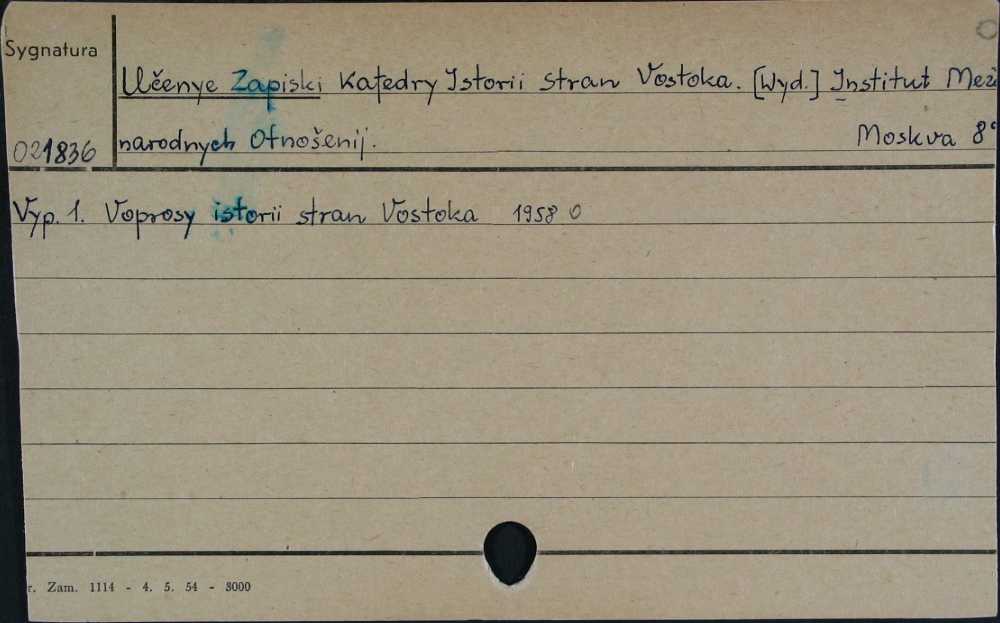 Sygnatura
Učenye Zapiski Katedry Istorii stran Vostoka. [Wyd.] Institut Mež
021836 narodnych Otnošenij. Moskva 8°
Vyp. 1. Voprosy istorii stran Vostoka 1958 0
r. Zam. 1114 - 4. 5. 54 - 3000